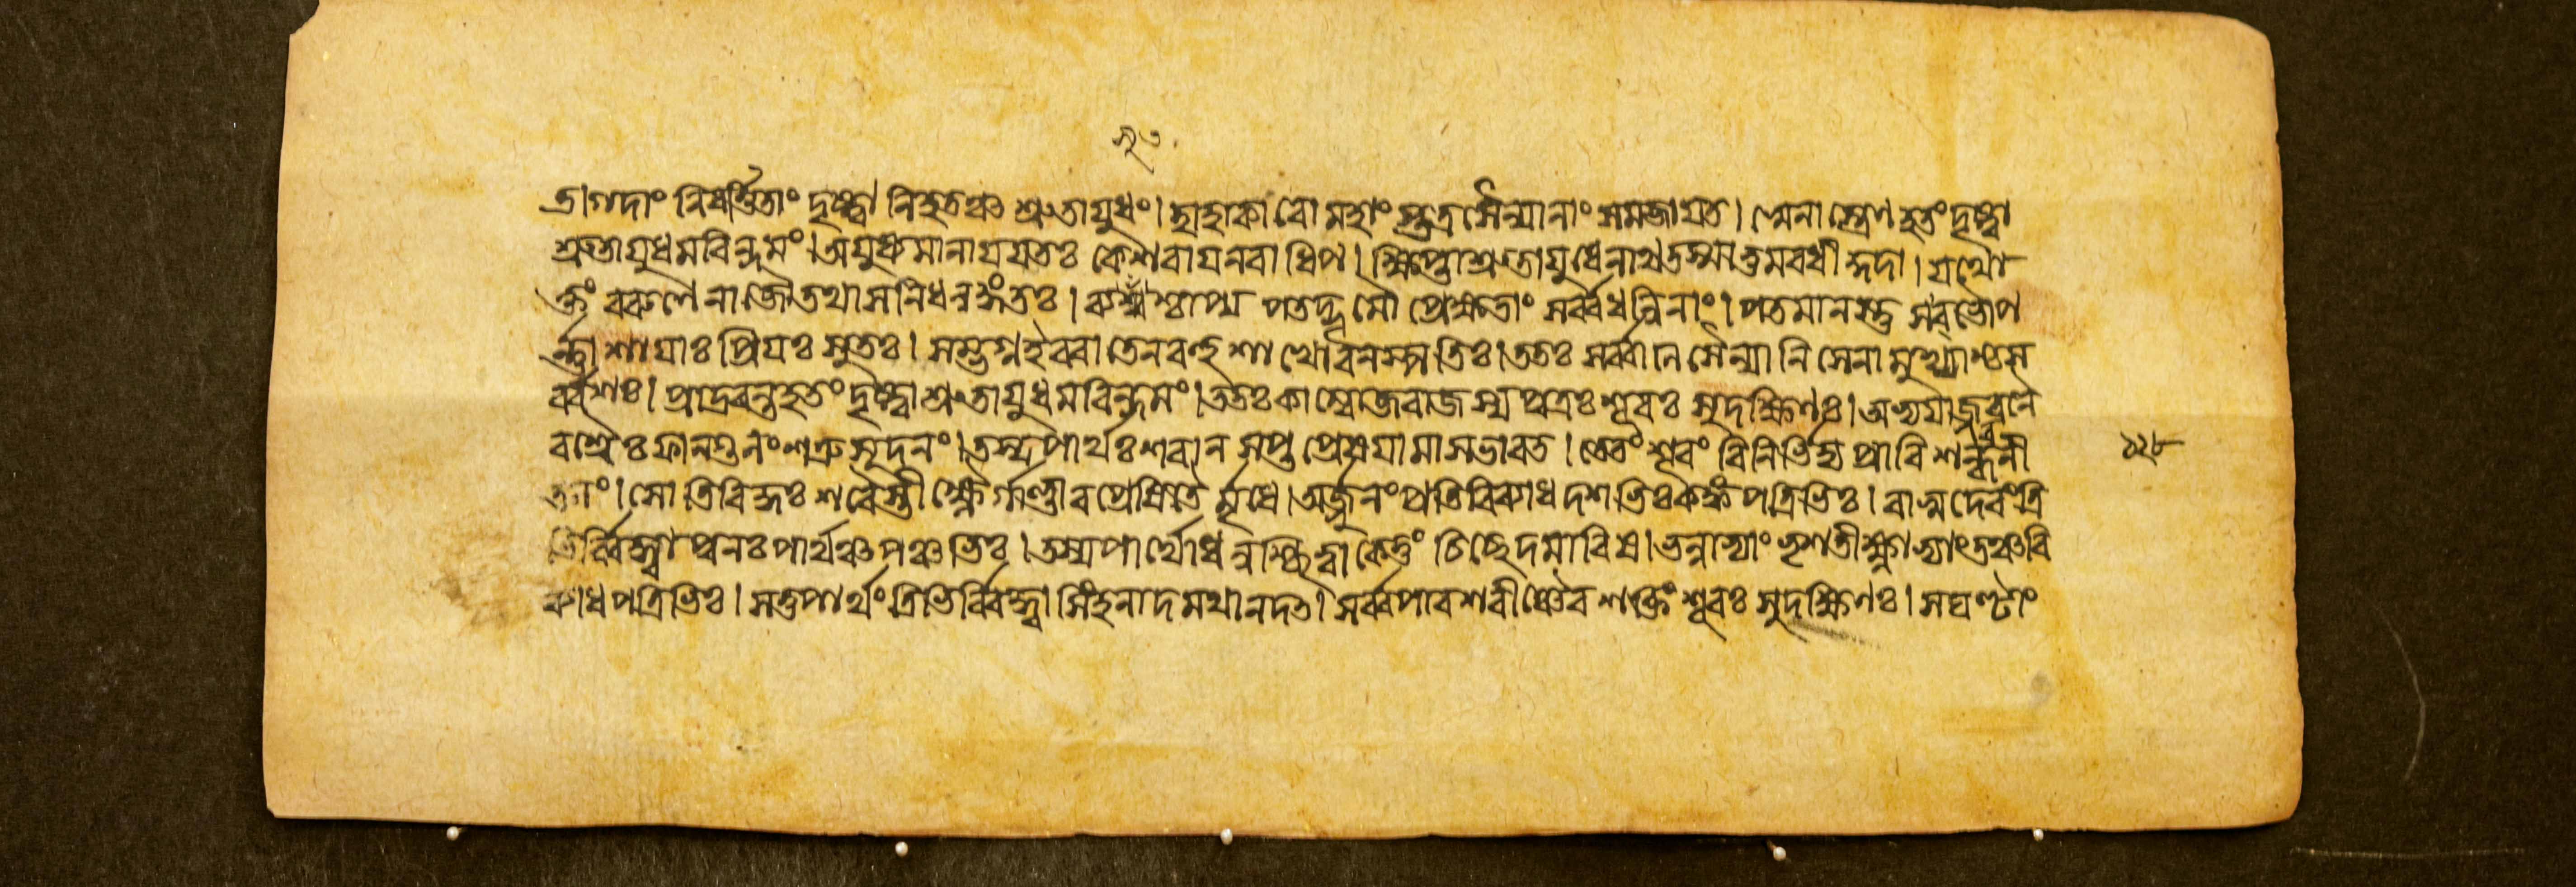 ৭৩
তাগদাং নিবর্ত্তিতাং দৃষ্ট্বা নিহতঞ্চ শ্রুতায়ুধং। হাহাকাৰো মহাং স্তত্র সৈন্যানাং সমজায়ত। স্বেনাস্ত্রেণ হতং দৃষ্ট্বা
শ্রুতায়ুধমৰিন্দমং। অয়ুধ্যমানায়য়তঃ কেশবায়নৰাধিপ। ক্ষিপ্তাশ্রুতায়ুধেনাথতস্মাত্তমবধীদ্গদা। য়থো
ক্তং বৰুণেনাজৌতথাসনিধনঙ্গতঃ। ব্যসুশ্চাপ্য পতদ্ভূমৌ প্রেক্ষতাং সর্ব্বধন্বিনাং। পতমানস্তু সবভৌপ
র্ন্নাশায়াঃ প্রিয়ঃ সুতঃ। সম্ভগ্নইববাতেনবহুশাখোবনস্পতিঃ। ততঃ সর্ব্বানি সৈন্যানি সেনামুখ্যাশ্চস
র্ব্বশঃ। প্রাদ্রবন্তহতং দৃষ্ট্বাশ্রুতায়ুধমৰিন্দমং। ততঃকাম্বোজৰাজস্যপুত্রঃশূৰঃ সুদক্ষিণঃ। অভ্যয়াজ্জবনৈ
ৰশ্বৈঃফাল্গুনংশত্রুসূদনং। তস্যপার্থঃশৰানসপ্ত প্রেষয়ামাসভাৰত। তেতং শূৰং বিনির্ভিদ্য প্রাবিশন্ধৰণী
তলং। সোতিবিদ্ধঃ শৰৈস্তীক্ষ্ণৈর্গাণ্ডীবপ্রেষিতৈর্মৃধে। অর্জ্জুনংপ্রতিবিব্যাধদশভিঃকঙ্কপত্রিভিঃ। বাসুদেবংত্রি
ভির্ব্বিদ্ধ্বাপুনঃপার্থঞ্চপঞ্চভিঃ। তস্যপার্থোধনুশ্ছিত্বাকেতুং চিচ্ছেদমাৰিষ। ভল্লাভ্যাং ভৃশতীক্ষ্ণাভ্যাংতঞ্চবি
ব্যাধপত্রিভিঃ। সতুপার্থংত্রিভির্ব্বিদ্ধ্বা সিংহনাদমথানদৎ। সর্ব্বপাৰশবীঞ্চৈব শক্তিং শূৰঃ সুদক্ষিণঃ। সঘণ্টাং
১২৮